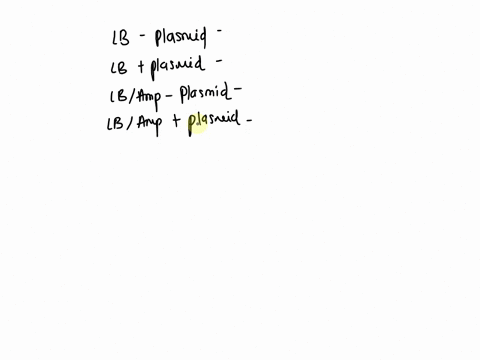 LB - plasmid -
LB + plasmid -
LB/Amp - Plasmid -
LB/Amp + plasmid -